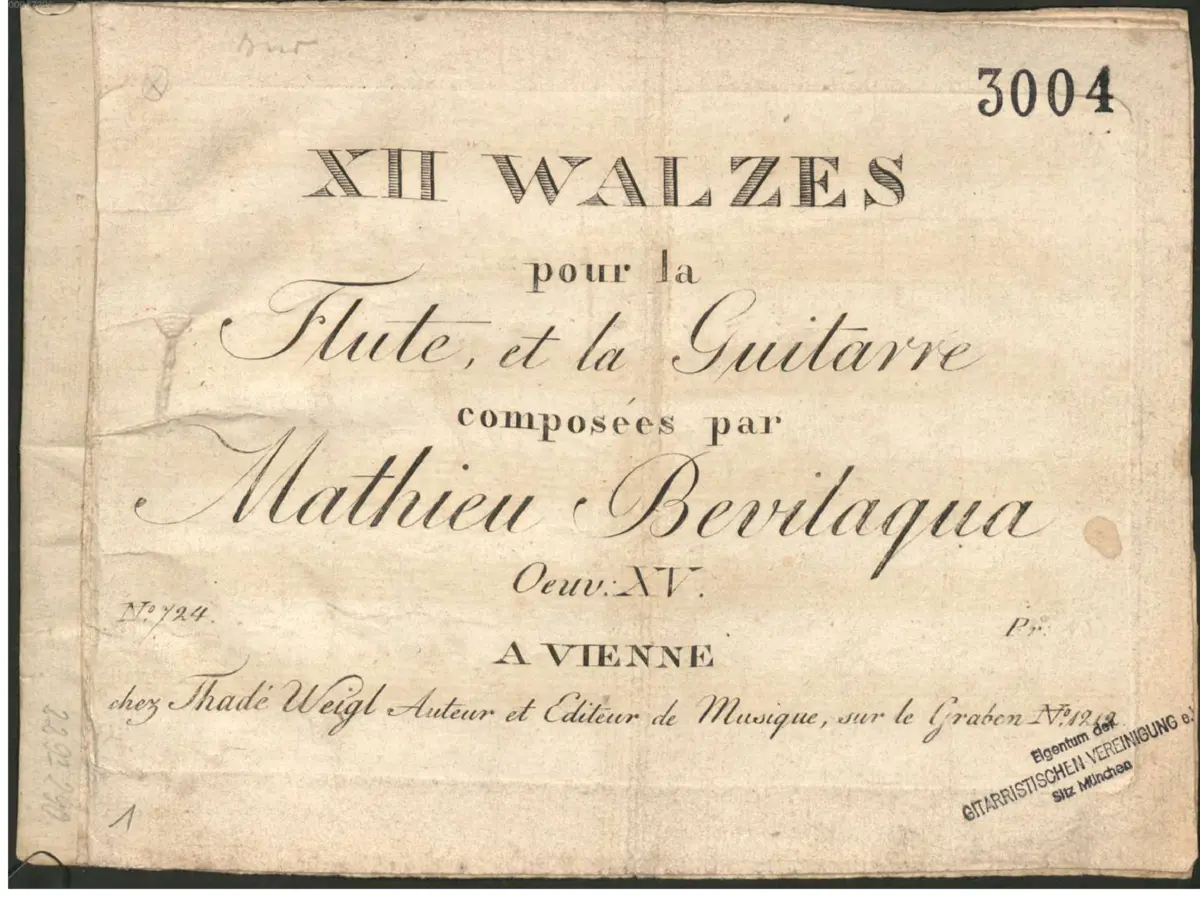 3004
XII WALZES
pour la
Flute, et la Guitarre
composées par
Mathieu Bevilaqua
Oeuv: XV.
N.º 724.
Pr:
A VIENNE
chez Thadé Weigl Auteur et Editeur de Musique, sur le Graben N.º 1212.
Eigentum der
GITARRISTISCHEN VEREINIGUNG e.V.
Sitz München
1